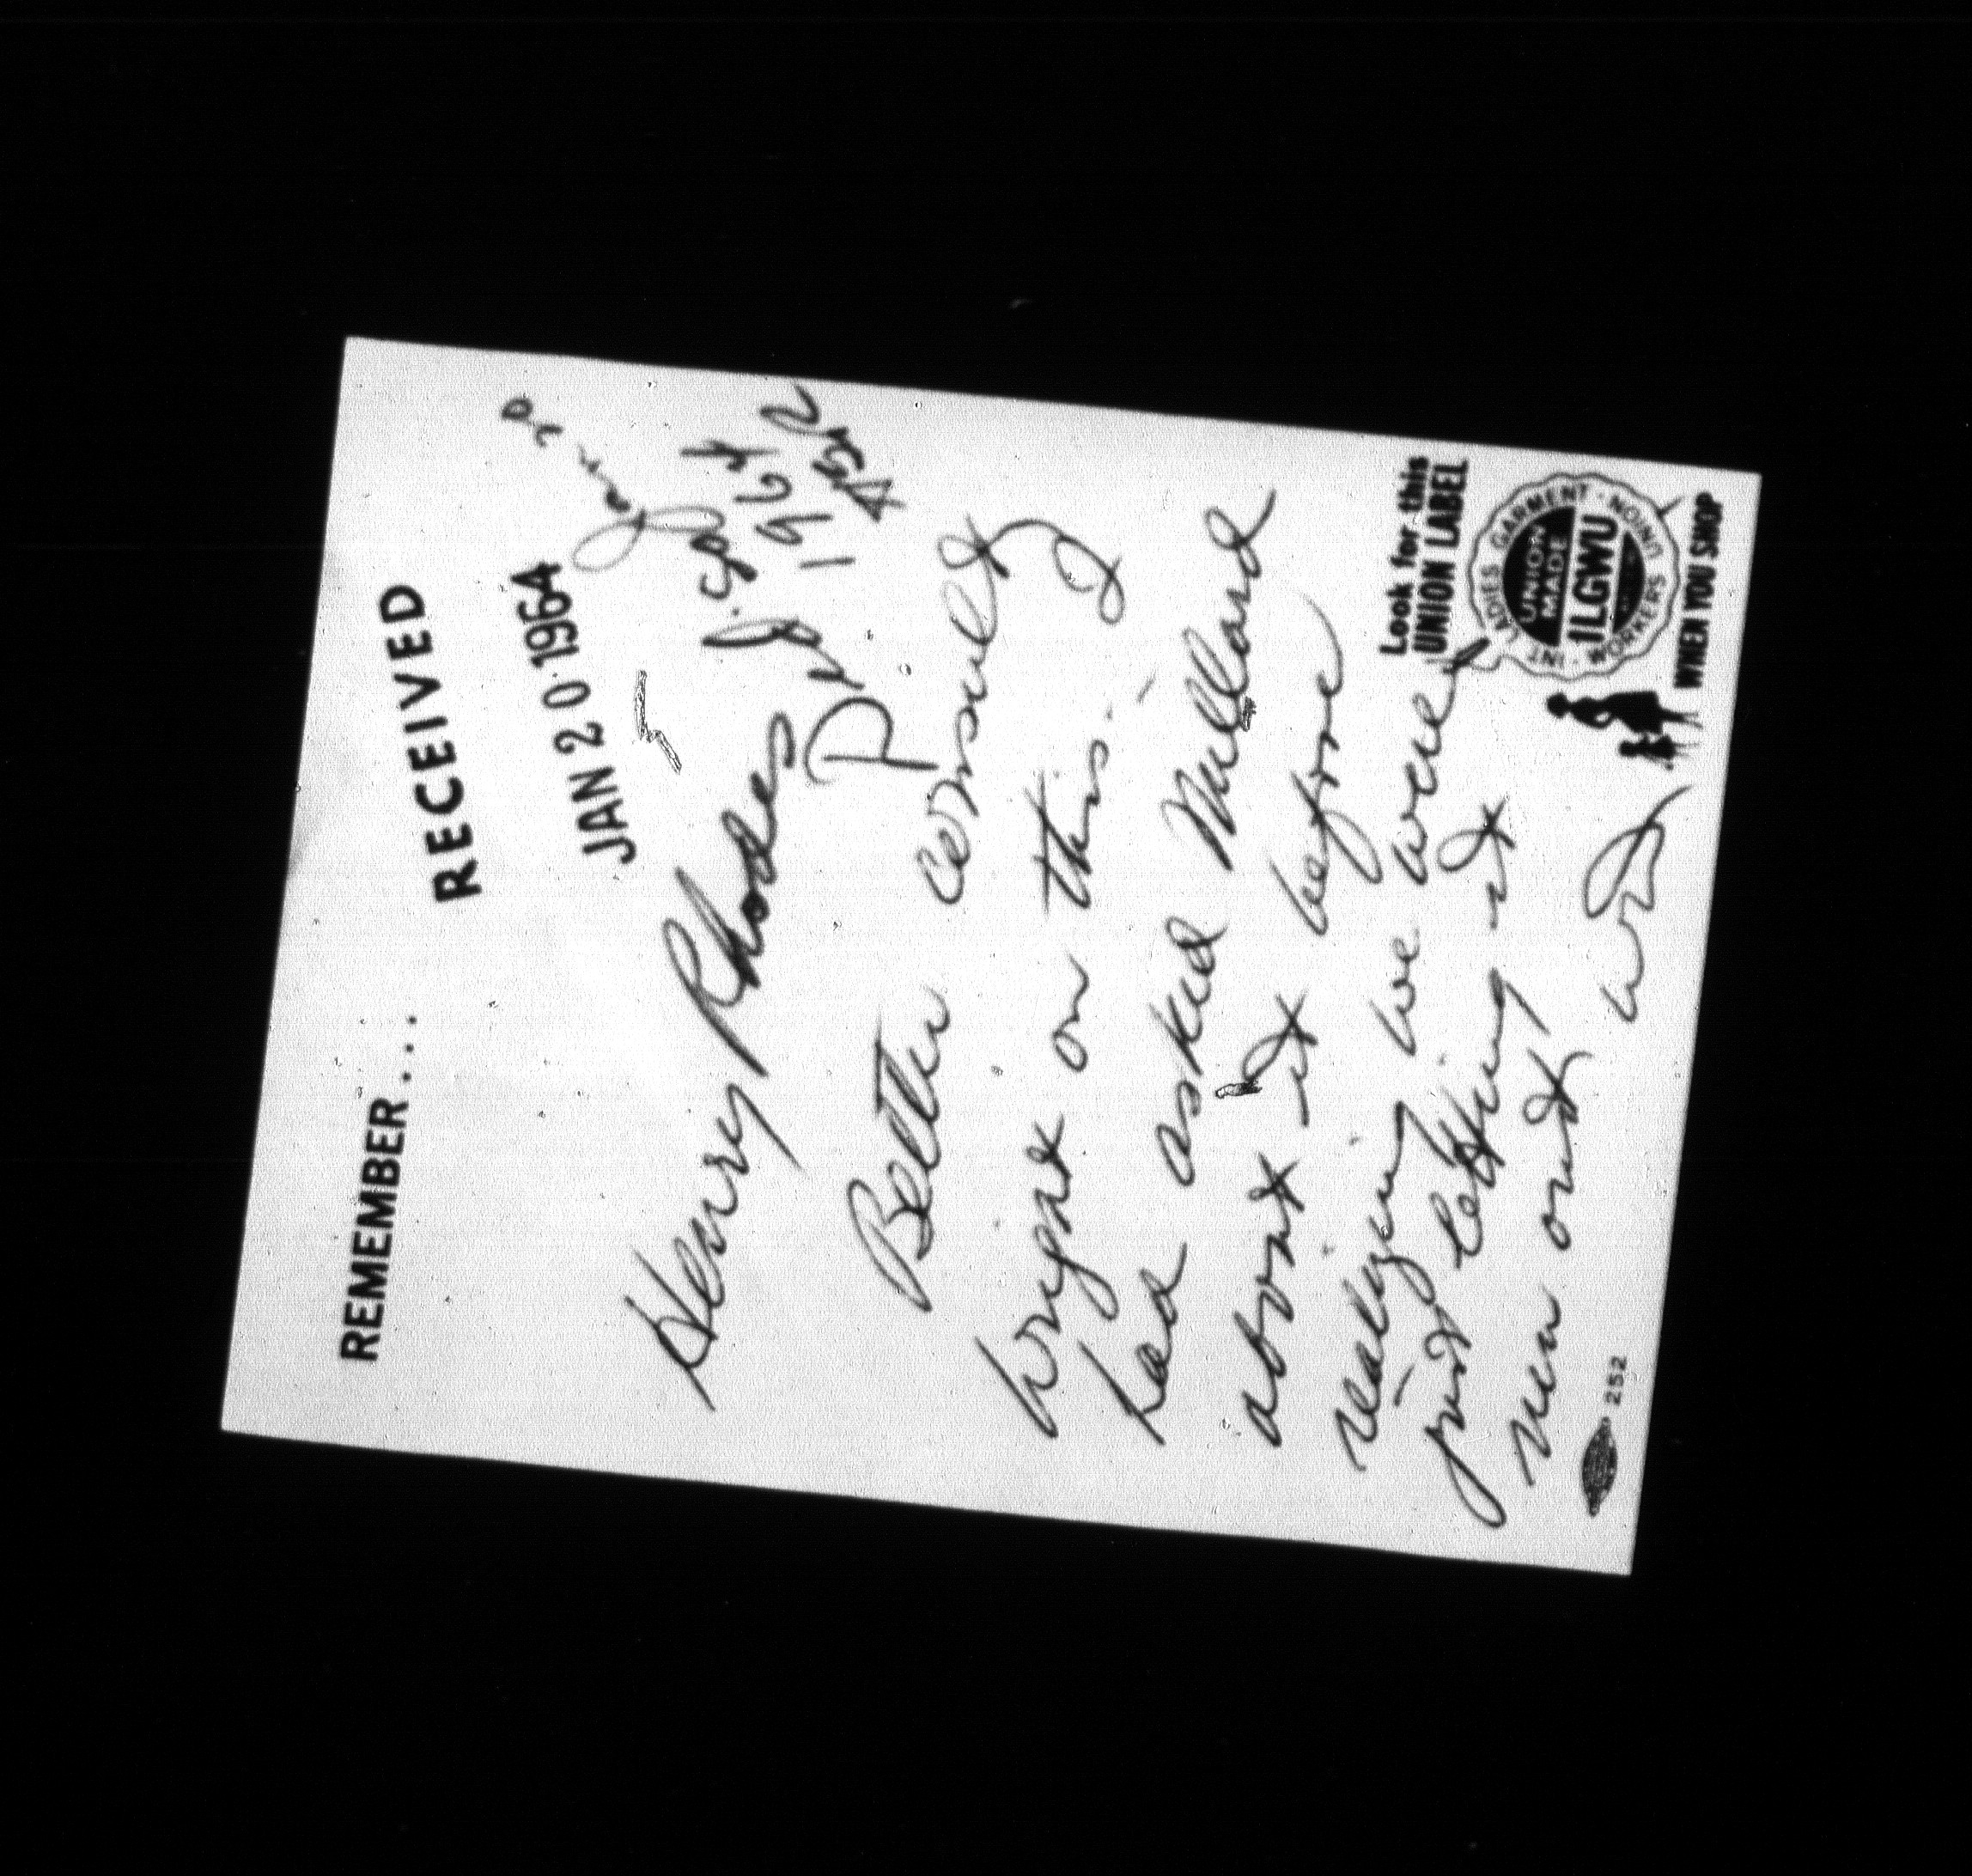 REMEMBER....
RECEIVED
JAN 20 1964
Jan 20
1964
Henry Rhodes
Better consult
Wright on this. I
had asked Millard
about it before
realizing we were
just letting it
run out
WD
Look for this
UNION LABEL
INT. LADIES GARMENT WORKERS UNION
UNION
MADE
ILGWU
WHEN YOU SHOP
252